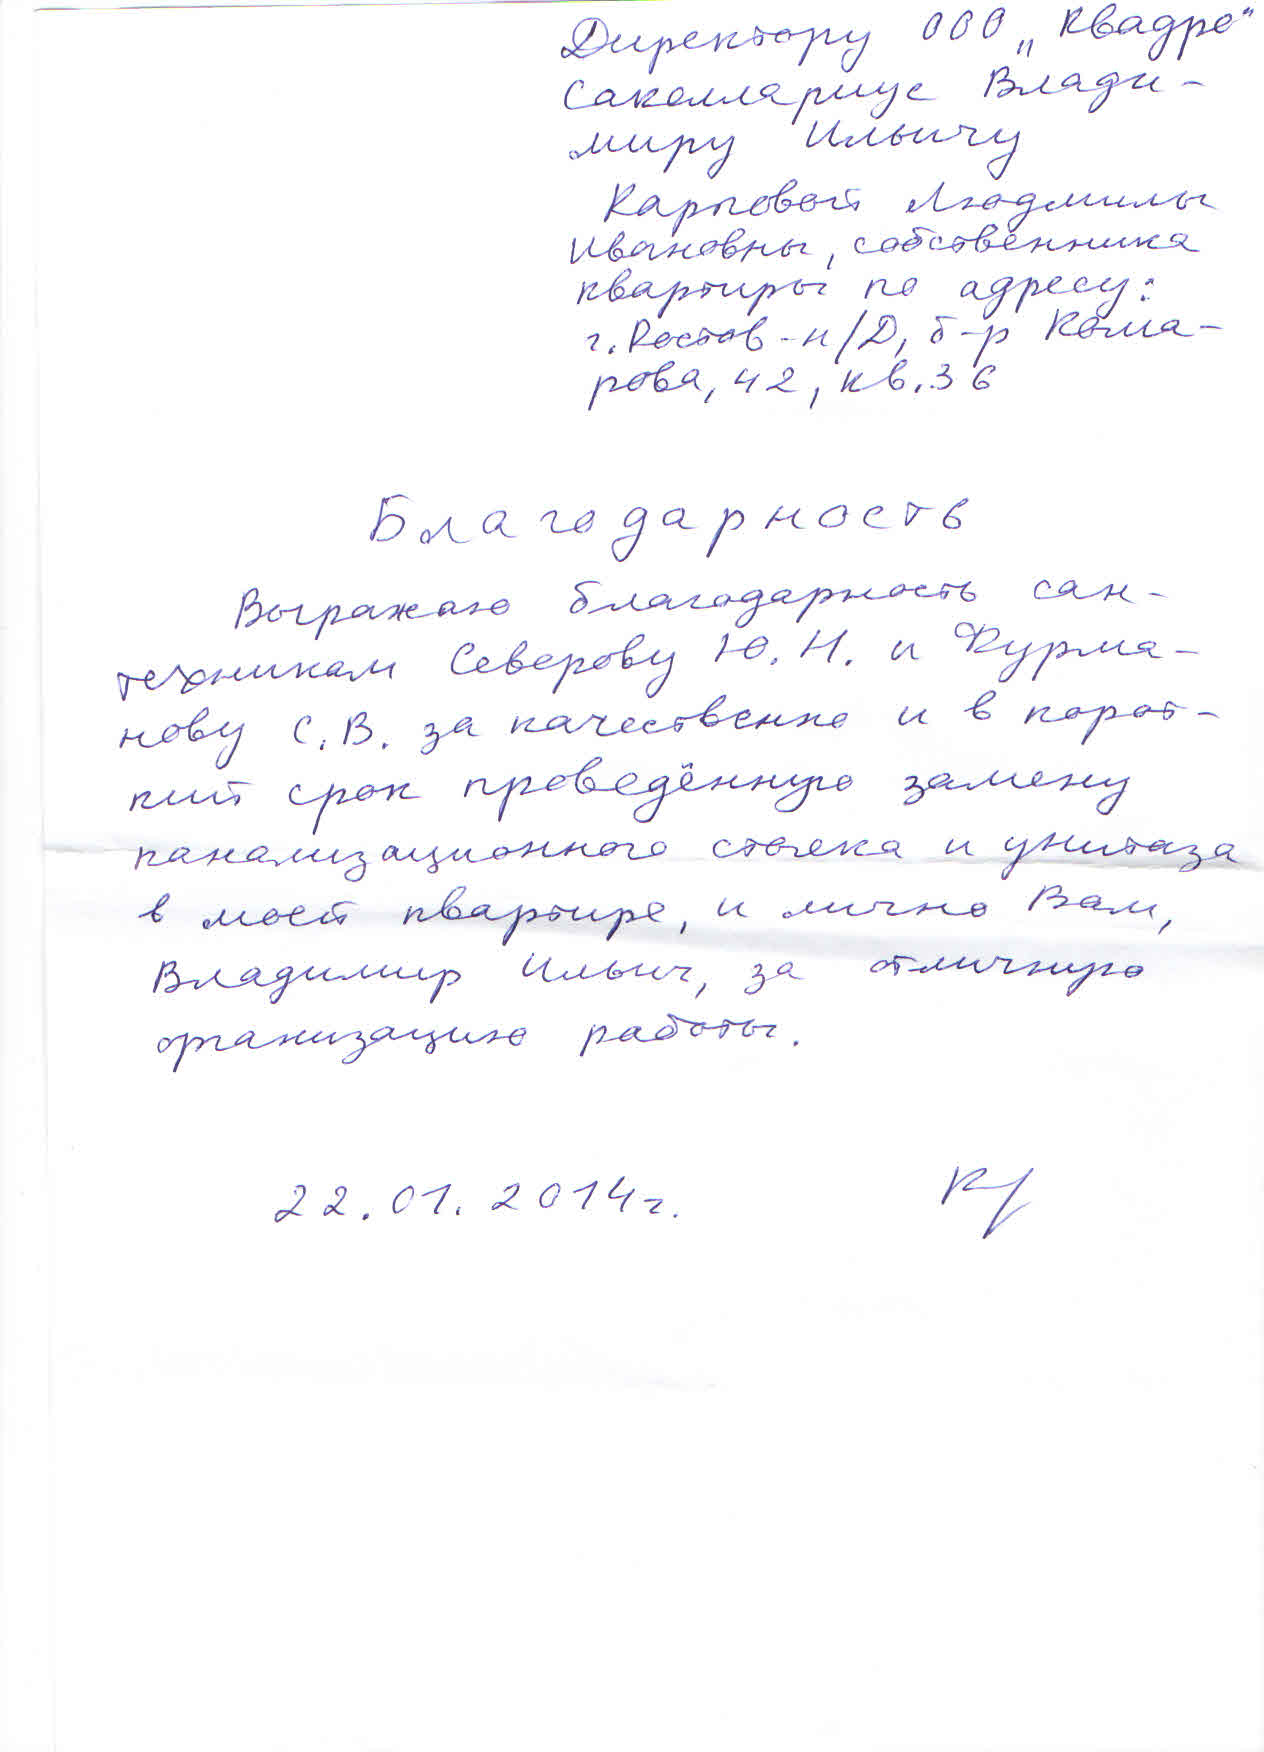 Директору ООО „Квадро"
Сакеллариус Влади-
миру Ильичу
Карповой Людмилы
Ивановны, собственника
квартиры по адресу:
г. Ростов-н/Д, б-р Кома-
рова, 42, кв. 36
Благодарность
Выражаю благодарность сан-
техникам Северову Ю.Н. и Фурма-
нову С.В. за качественно и в корот-
кий срок проведённую замену
канализационного стояка и унитаза
в моей квартире, и лично Вам,
Владимир Ильич, за отличную
организацию работы.
22.01.2014г.